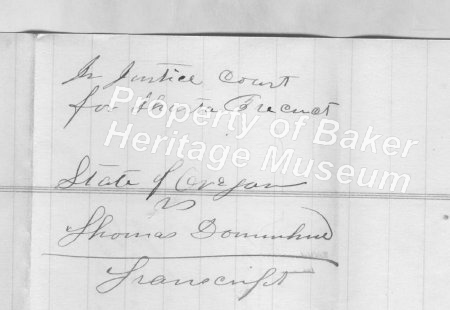 In Justice Court
for Precinct
Property of Baker
Heritage Museum
State of Oregon
vs
Thomas
Transcript